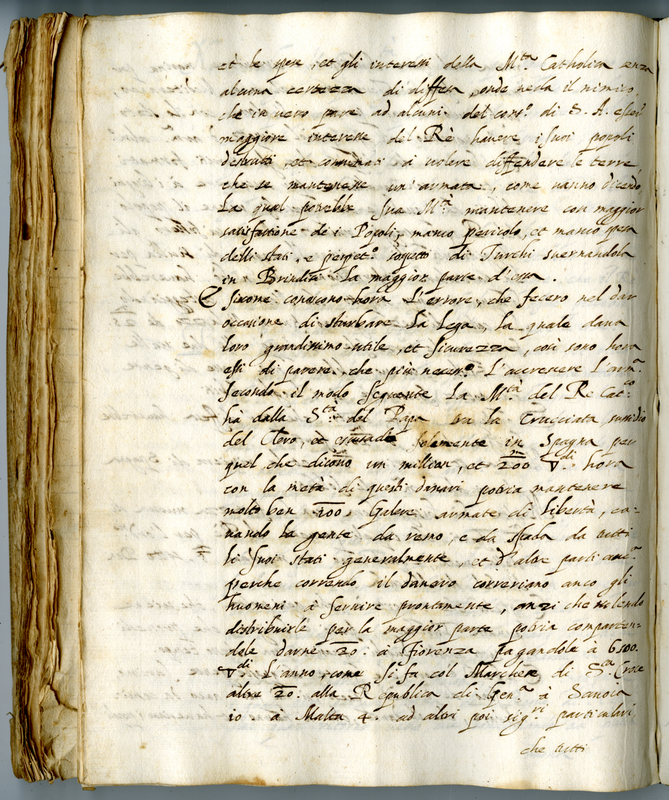 et le spese, et gli interessi della M.tà Catholica senza
alcuna certezza di diffesa, onde vada il nimico,
che in vero pare ad alcuni del cons.o di S. A. esser
maggiore interesse del Rè havere i suoi popoli
destrutti, et consumati à volere diffendere le terre
che se mantenesse un'armata, come vanno dicendo
La qual potrebbe sua M.tà mantenere con maggior
satisfattione de i Popoli, manco pericolo, et manco spesa
delli stati, e perpet.o sogetto di Turchi svernandola
in Brindisi la maggior parte d'essa.
E sicome conoscono hora l'errore, che fecero nel dar
occasione di sturbare la Lega, la quale dava
loro grandissimo utile, et sicurezza, così sono hora
essi di parere, che più necess.o l'accrescere l'arm.
secondo il modo sequente La M.tà del Re Cat.co
hà dalla S.tà del Papa tra la Crucciata, sussidio
del Clero, et solamente in Spagna per
quel che dicono un million, et 200 hora
con la metà di questi danari potria mantenere
molto ben 100 Galere armate di libertà, ca-
vando la gente da remo, e da spada da tutti
li suoi stati generalmente, et d'altre parti
perche correndo il danaro correriano anco gli
huomeni à servire prontamente, anzi che volendo
distribuirle per la maggior parte potria comparten-
dole darne 20. à Fiorenza pagandole à 6500.
l'anno, come si fa col Marchese di S.ta Croce
altre 20. alla Republica di Gen.a à Savoia
10 à Malta 4. ad altri poi sig.ri particulari
che tutti